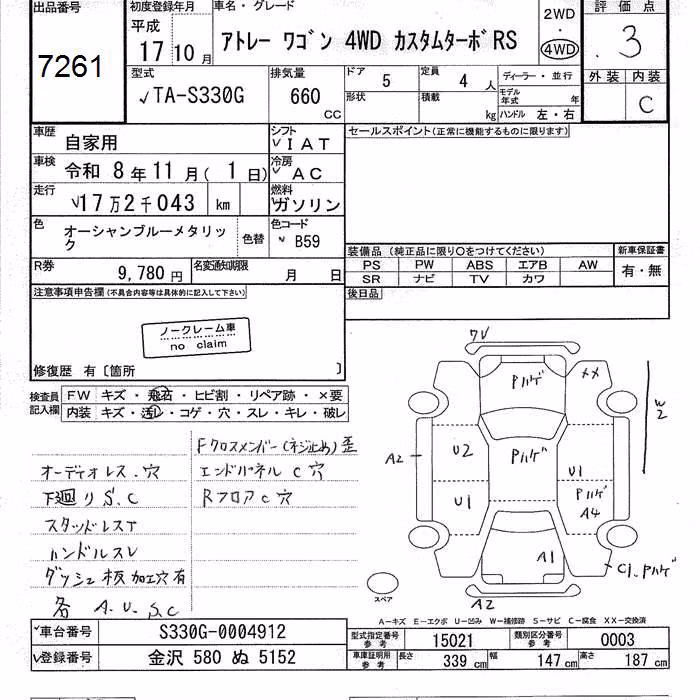 出品番号
7261
初度登録年月
平成
17 10月
車名・グレード
アトレー ワゴン 4WD カスタムターボRS
2WD
・
4WD
評価点
3
外装 内装
C
型式
✓TA-S330G
排気量
660
CC
ドア
5
定員
4 人
形状
積載
kg
ディーラー・並行
モデル年式 年
ハンドル 左・右
車歴
自家用
シフト
✓IAT
車検
令和 8年11月( 1日)
冷房
✓AC
走行
✓17万2千043 km
燃料
✓ガソリン
色
オーシャンブルーメタリック
色替
色コード
✓B59
R券
9,780円
名変通知期限
月 日
セールスポイント(正常に機能するものに限ります)
装備品 (純正品に限り○をつけてください)
PS PW ABS エアB AW
SR ナビ TV カワ
新車保証書
有・無
後日品
注意事項申告欄(不具合内容等は具体的に記入して下さい)
ノークレーム車
no claim
修復歴 有〔箇所 〕
検査員記入欄
FW キズ・飛石・ヒビ割・リペア跡・×要
内装 キズ・汚レ・コゲ・穴・スレ・キレ・破レ
Fクロスメンバー(ネジ止め)歪
オーディオレス.穴
エンドパネルC穴
下廻りS.C
RフロアC穴
スタッドレスT
ハンドルスレ
ダッシュ板加工穴有
各 A.U.S.C
ワV
Pハゲ
XX
W2
A2
U2
Pハゲ
U1
U1
Pハゲ
A4
A1
C1.Pハゲ
A2
スペア
A-キズ E-エクボ U-凹み W-補修跡 S-サビ C-腐食 XX-交換済
✓車台番号
S330G-0004912
✓登録番号
金沢 580 ぬ 5152
型式指定番号
参考
15021
類別区分番号
参考
0003
車庫証明用
参考
長さ
339 cm
幅
147cm
高さ
187 cm